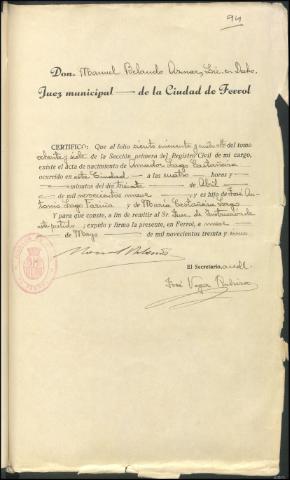 94
Don Manuel Belando Aznar, Lic. en Dcho.
Juez municipal de la Ciudad de Ferrol
CERTIFICO: Que al folio ciento cincuenta y del tomo
ochenta y siete de la Sección primera del Registro Civil de mi cargo,
existe el acta de nacimiento de Amador Lago Castañeira
ocurrido en esta Ciudad a las cuatro horas y
minutos del día treinta de Abril
de mil novecientos nueve y es hijo de José An-
tonio Lago Fariña y de María Castañeira Lago
Y para que conste, a fin de remitir al Sr. Juez de Instrucción de
este partido, expido y firmo la presente, en Ferrol, a
de Mayo de mil novecientos treinta y
Manuel Belando
El Secretario,
José Vega